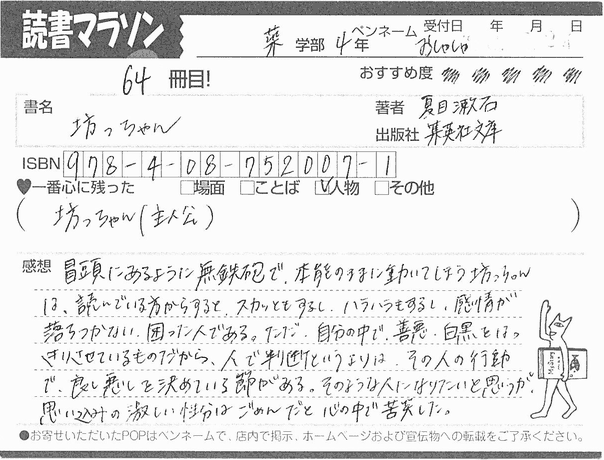 読書マラソン
薬 学部 4年 ペンネーム おしゃしゃ 受付日 年 月 日
64 冊目! おすすめ度
書名 坊っちゃん
著者 夏目漱石
出版社 集英社文庫
ISBN 978-4-08-752007-1
♥一番心に残った □場面 □ことば ☑人物 □その他
( 坊っちゃん(主人公) )
感想 冒頭にあるように無鉄砲で、本能のままに動いてしまう坊っちゃん
は、読んでいる方からすると、スカッともするし、ハラハラもするし、感情が
落ちつかない、困った人である。ただ、自分の中で、善悪・白黒とはっ
きりさせているものだから、人で判断というよりは、その人の行動
で、良し悪しを決めている節がある。そのような人になりたいと思うが、
思い込みの激しい性分はごめんだと心の中で苦笑した。
●お寄せいただいたPOPはペンネームで、店内で掲示、ホームページおよび宣伝物への転載をご了承ください。